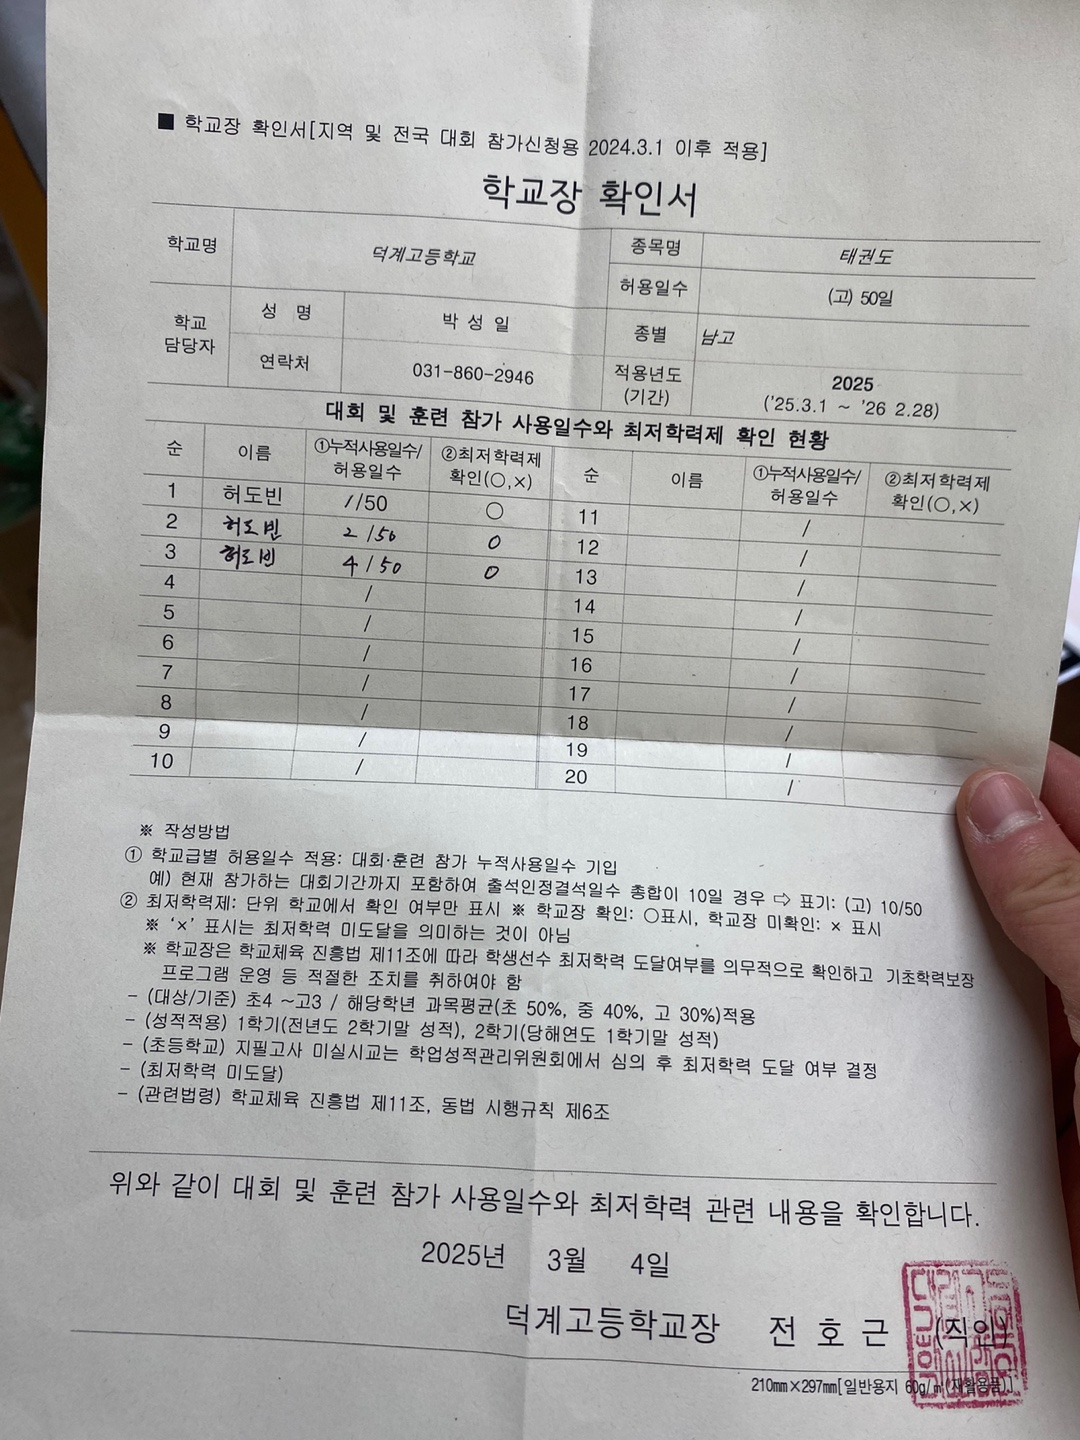 ■ 학교장 확인서[지역 및 전국 대회 참가신청용 2024.3.1 이후 적용]
학교장 확인서
학교명 덕계고등학교 종목명 태권도
허용일수 (고) 50일
학교 담당자 성 명 박 성 일 종별 남고
연락처 031-860-2946 적용년도 (기간) 2025 ('25.3.1 ~ '26 2.28)
대회 및 훈련 참가 사용일수와 최저학력제 확인 현황
순 이름 ①누적사용일수/허용일수 ②최저학력제 확인(○,×) 순 이름 ①누적사용일수/허용일수 ②최저학력제 확인(○,×)
1 허도빈 1/50 ○ 11 /
2 허도빈 2/50 0 12 /
3 허도빈 4/50 0 13 /
4 / 14 /
5 / 15 /
6 / 16 /
7 / 17 /
8 / 18 /
9 / 19 /
10 / 20 /
※ 작성방법
① 학교급별 허용일수 적용: 대회·훈련 참가 누적사용일수 기입
예) 현재 참가하는 대회기간까지 포함하여 출석인정결석일수 총합이 10일 경우 ⇨ 표기: (고) 10/50
② 최저학력제: 단위 학교에서 확인 여부만 표시 ※ 학교장 확인: ○표시, 학교장 미확인: × 표시
※ '×' 표시는 최저학력 미도달을 의미하는 것이 아님
※ 학교장은 학교체육 진흥법 제11조에 따라 학생선수 최저학력 도달여부를 의무적으로 확인하고 기초학력보장
프로그램 운영 등 적절한 조치를 취하여야 함
- (대상/기준) 초4 ~고3 / 해당학년 과목평균(초 50%, 중 40%, 고 30%)적용
- (성적적용) 1학기(전년도 2학기말 성적), 2학기(당해연도 1학기말 성적)
- (초등학교) 지필고사 미실시교는 학업성적관리위원회에서 심의 후 최저학력 도달 여부 결정
- (최저학력 미도달)
- (관련법령) 학교체육 진흥법 제11조, 동법 시행규칙 제6조
위와 같이 대회 및 훈련 참가 사용일수와 최저학력 관련 내용을 확인합니다.
2025년 3월 4일
덕계고등학교장 전 호 근 (직인)
210㎜×297㎜[일반용지 60g/㎡(재활용품)]